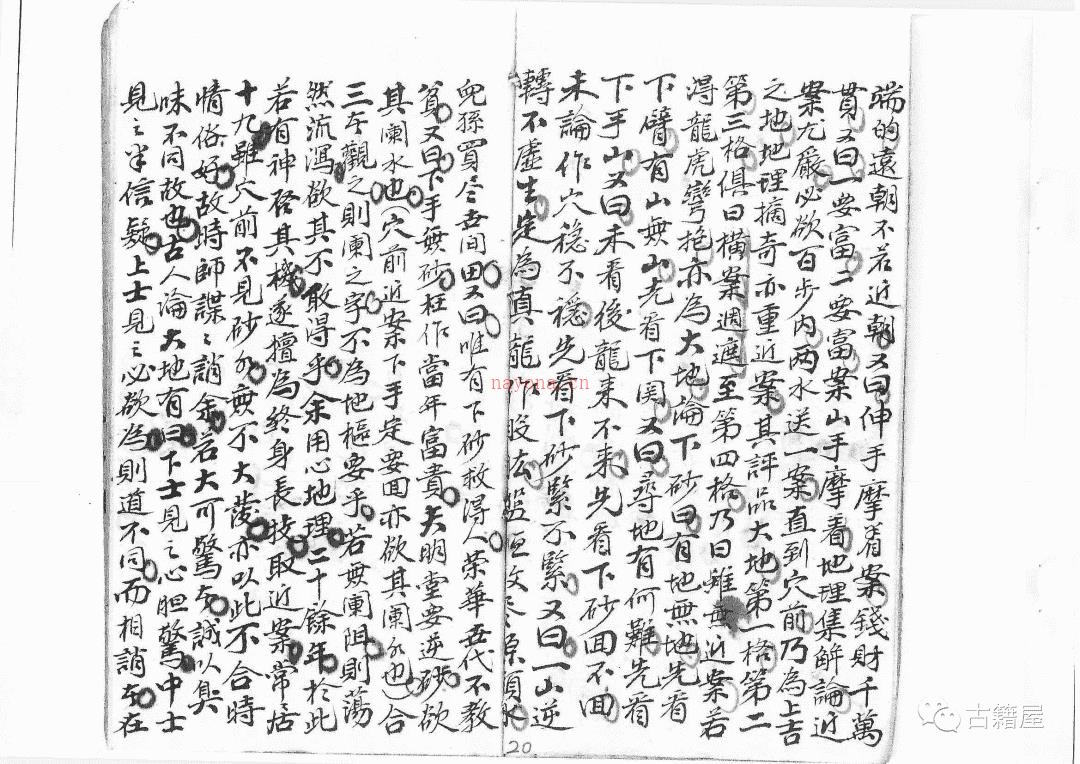 端的遠朝不若近朝又曰伸手摩着案錢財千萬
貫又曰一要富二要富案山手摩着地理集解論近
案尤嚴必欲百步内两水送一案直到穴前乃為上吉
之地地理摘奇亦重近案其評品大地第一格第二
第三格俱曰横案週遮至第四格乃曰雖無近案若
得龍虎彎抱亦為大地論下砂曰有地無地先看
下臂有山無山先看下関又曰尋地有何難先看
下手山又曰未看後龍来不来先看下砂回不回
未論作穴穏不穏先看下砂緊不緊又曰一山逆
轉不虛生定為真龍作
兒孫買尽世间田又曰唯有下砂救得人榮華世代不教
貧又曰下手無砂枉作當年富貴大明堂要逆砂欲
其阑水也穴前近案下手定要回亦欲其阑水也合
三者觀之則阑之字不為地樞要乎若無阑阻則蕩
然流瀉欲其不敢得乎余用心地理二十餘年於此
若有神啓其機遂擅為終身長技取近案常居
十九雖穴前不見砂水無不大發亦以此不合時
情俗好故時師諜〻誚余若大可驚者誠以臭
味不同故也古人論大地有曰下士見之心胆驚中士
見之半信疑上士見之必欲為則道不同而相誚者在
20
nayona.cn
古籍屋